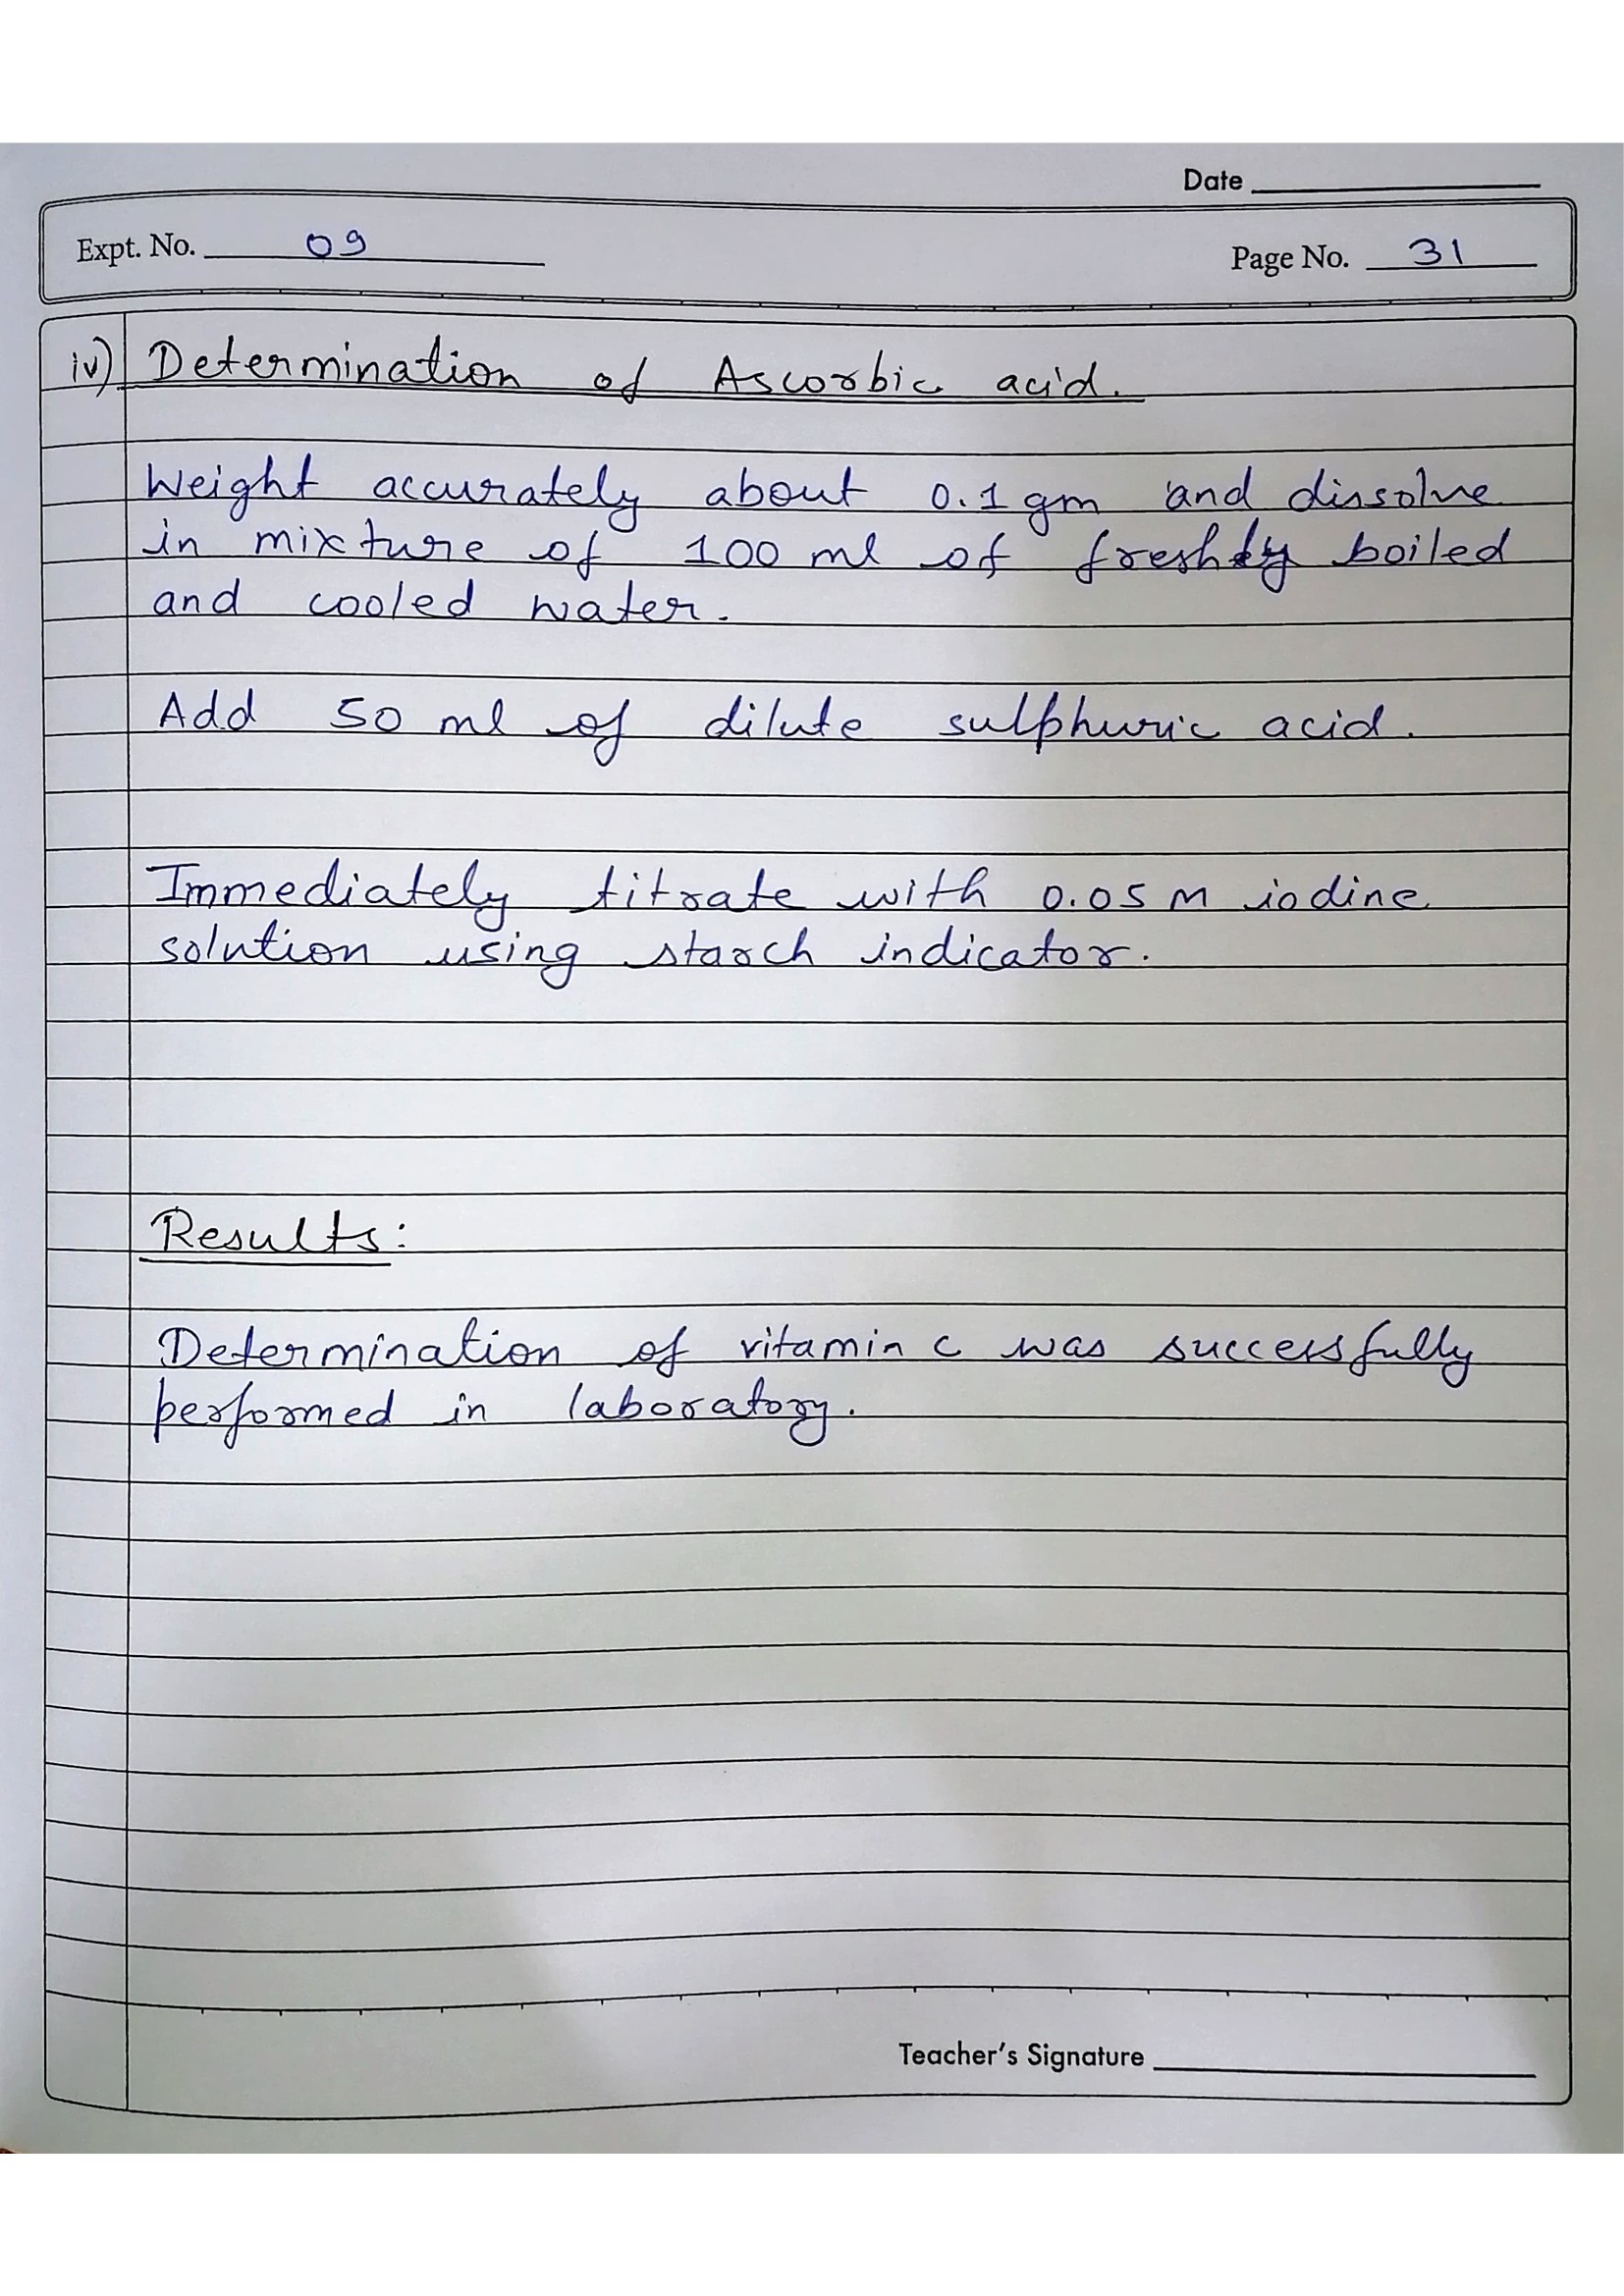 Date
Expt. No. 09
Page No. 31
iv) Determination of Ascorbic acid.
Weight accurately about 0.1 gm and dissolve
in mixture of 100 ml of freshly boiled
and cooled water.
Add 50 ml of dilute sulphuric acid.
Immediately titrate with 0.05 M iodine
solution using starch indicator.
Results:
Determination of vitamin C was successfully
performed in laboratory.
Teacher's Signature